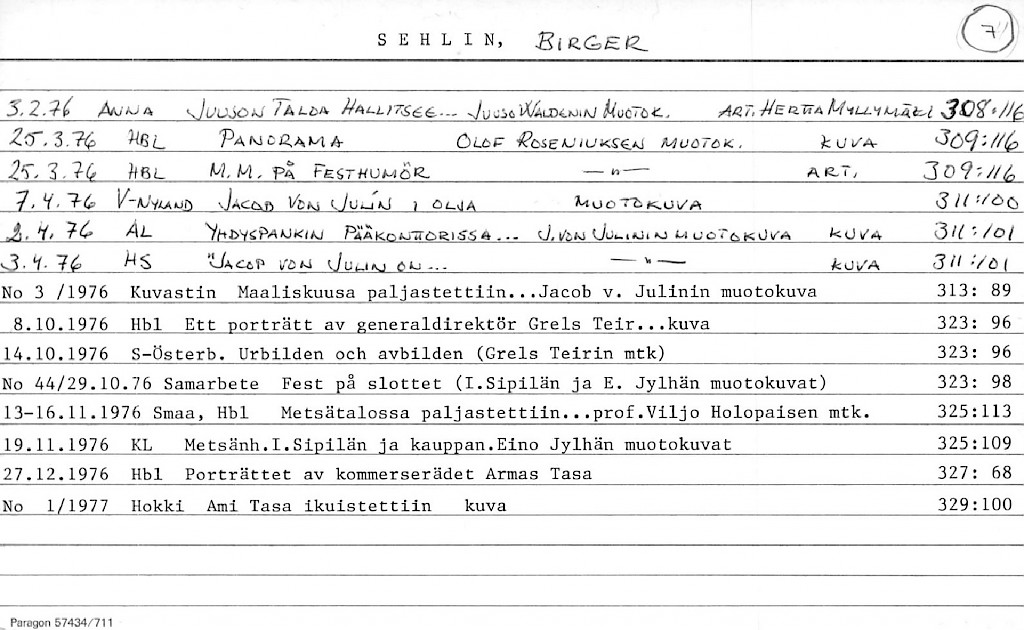 SEHLIN, BIRGER 7
3.2.76 ANNA JUUSON TALOA HALLITSEE... JUUSO WALDENIN MUOTOK. ART. HERTTA MYLLYMÄKI 308:116
25.3.76 HBL PANORAMA OLOF ROSENIUKSEN MUOTOK. KUVA 309:116
25.3.76 HBL M.M. PÅ FESTHUMÖR —"— ART. 309:116
7.4.76 V-NYLAND JACOB VON JULIN I OLJA MUOTOKUVA 311:100
2.4.76 AL YHDYSPANKIN PÄÄKONTTORISSA... J.VON JULININ MUOTOKUVA KUVA 311:101
3.4.76 HS "JACOP VON JULIN ON... —"— KUVA 311:101
No 3 /1976 Kuvastin Maaliskuusa paljastettiin...Jacob v. Julinin muotokuva 313: 89
8.10.1976 Hbl Ett porträtt av generaldirektör Grels Teir...kuva 323: 96
14.10.1976 S-Österb. Urbilden och avbilden (Grels Teirin mtk) 323: 96
No 44/29.10.76 Samarbete Fest på slottet (I.Sipilän ja E. Jylhän muotokuvat) 323: 98
13-16.11.1976 Smaa, Hbl Metsätalossa paljastettiin...prof.Viljo Holopaisen mtk. 325:113
19.11.1976 KL Metsänh.I.Sipilän ja kauppan.Eino Jylhän muotokuvat 325:109
27.12.1976 Hbl Porträttet av kommerserådet Armas Tasa 327: 68
No 1/1977 Hokki Ami Tasa ikuistettiin kuva 329:100
Paragon 57434/711